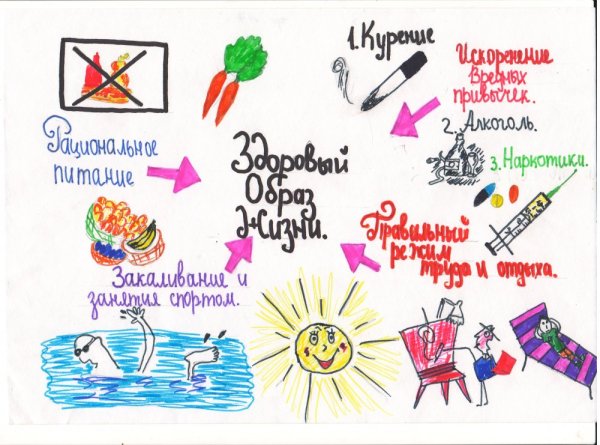 1. Курение
Искоренение
Вредных
привычек.
2. Алкоголь.
3. Наркотики.
Рациональное
питание
Здоровый
Образ
Жизни.
Правильный
режим
труда и отдыха.
Закаливание и
занятия спортом.